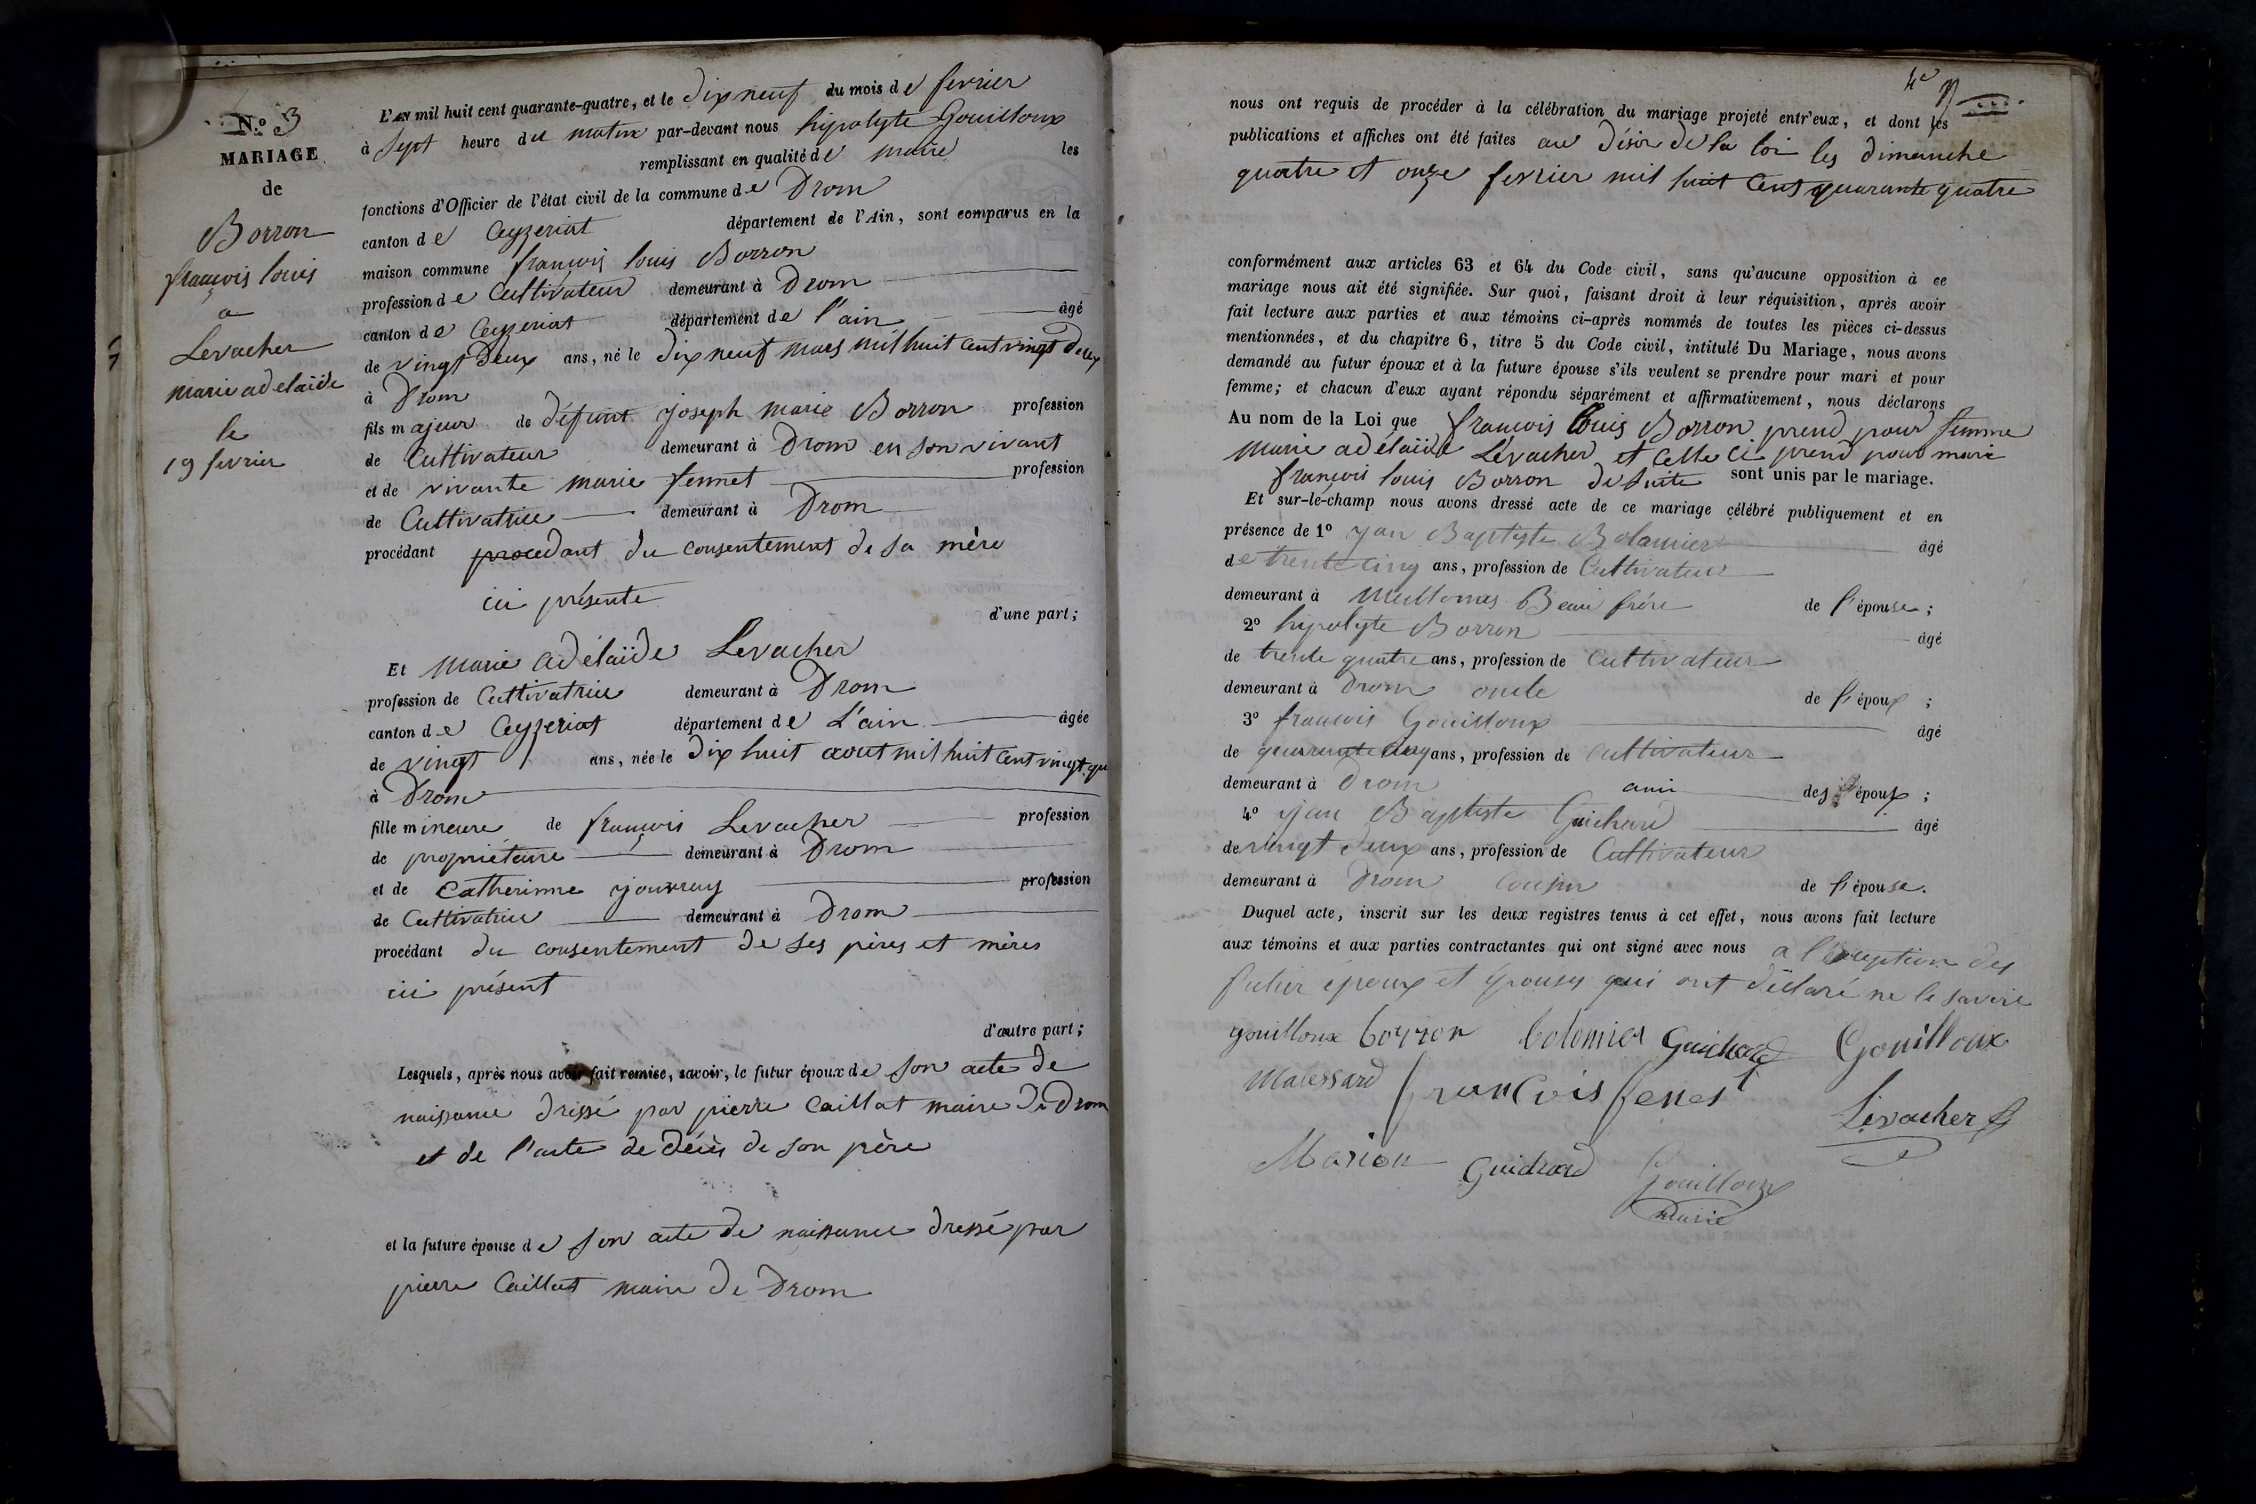 N.º 3
MARIAGE
de
Borron
françois louis
a
Levacher
marie adelaïde
le
19 fevrier
L'AN mil huit cent quarante-quatre, et le dix neuf du mois de fevrier
à sept heure du matin par-devant nous hipolyte Gouilloux
remplissant en qualité de maire les
fonctions d'Officier de l'état civil de la commune de Drom
canton de Ceyzeriat département de l'Ain, sont comparus en la
maison commune françois louis Borron
profession de Cultivateur demeurant à Drom
canton de Ceyzeriat département de l'ain âgé
de vingt deux ans, né le dix neuf mars mil huit cent vingt deux
à Drom
fils majeur de défunt joseph marie Borron profession
de Cultivateur demeurant à Drom en son vivant
et de vivante marie fennet profession
de Cultivatrice demeurant à Drom
procédant procedant du consentement de sa mère
ici présente
d'une part;
Et Marie adélaïde Levacher
profession de Cultivatrice demeurant à Drom
canton de Ceyzeriat département de L'ain âgée
de vingt ans, née le dix huit aout mil huit cent vingt qu
à Drom
fille mineure de françois Levacher profession
de propriétaire demeurant à Drom
et de Catherinne jouvray profession
de Cultivatrice demeurant à Drom
procédant du consentement de ses pères et mères
ici présent
d'autre part;
Lesquels, après nous avoir fait remise, savoir, le futur époux de son acte de
naissance dressé par pierre Caillat maire de Drom
et de l'acte de décès de son père
et la future épouse de son acte de naissance dressé par
pierre Caillat maire de Drom
4e
nous ont requis de procéder à la célébration du mariage projeté entr'eux, et dont les
publications et affiches ont été faites au désir de la loi les dimanche
quatre et onze fevrier mil huit cent quarante quatre
conformément aux articles 63 et 64 du Code civil, sans qu'aucune opposition à ce
mariage nous ait été signifiée. Sur quoi, faisant droit à leur réquisition, après avoir
fait lecture aux parties et aux témoins ci-après nommés de toutes les pièces ci-dessus
mentionnées, et du chapitre 6, titre 5 du Code civil, intitulé Du Mariage, nous avons
demandé au futur époux et à la future épouse s'ils veulent se prendre pour mari et pour
femme; et chacun d'eux ayant répondu séparément et affirmativement, nous déclarons
Au nom de la Loi que françois Louis Borron prend pour femme
Marie adélaïde Lévacher et celle ci prend pour mari
françois louis Borron de suite sont unis par le mariage.
Et sur-le-champ nous avons dressé acte de ce mariage célébré publiquement et en
présence de 1º jan Baptiste Bolomier âgé
de trente cinq ans, profession de Cultivateur
demeurant à Beau frère de l'épouse;
2º hypolyte Borron âgé
de trente quatre ans, profession de Cultivateur
demeurant à Drom oncle de l'époux;
3º françois Gouilloux âgé
de quarante cinq ans, profession de Cultivateur
demeurant à Drom ami des époux;
4º jan Baptiste Guichard âgé
de vingt deux ans, profession de Cultivateur
demeurant à Drom cousin de l'épouse.
Duquel acte, inscrit sur les deux registres tenus à cet effet, nous avons fait lecture
aux témoins et aux parties contractantes qui ont signé avec nous a l'éxeption des
futur époux et épouses qui ont déclaré ne le savoire
gouilloux borron bolomier Guichard Gouilloux
françois fenet
Lévacher
Marion Guichard Gouilloux
maire